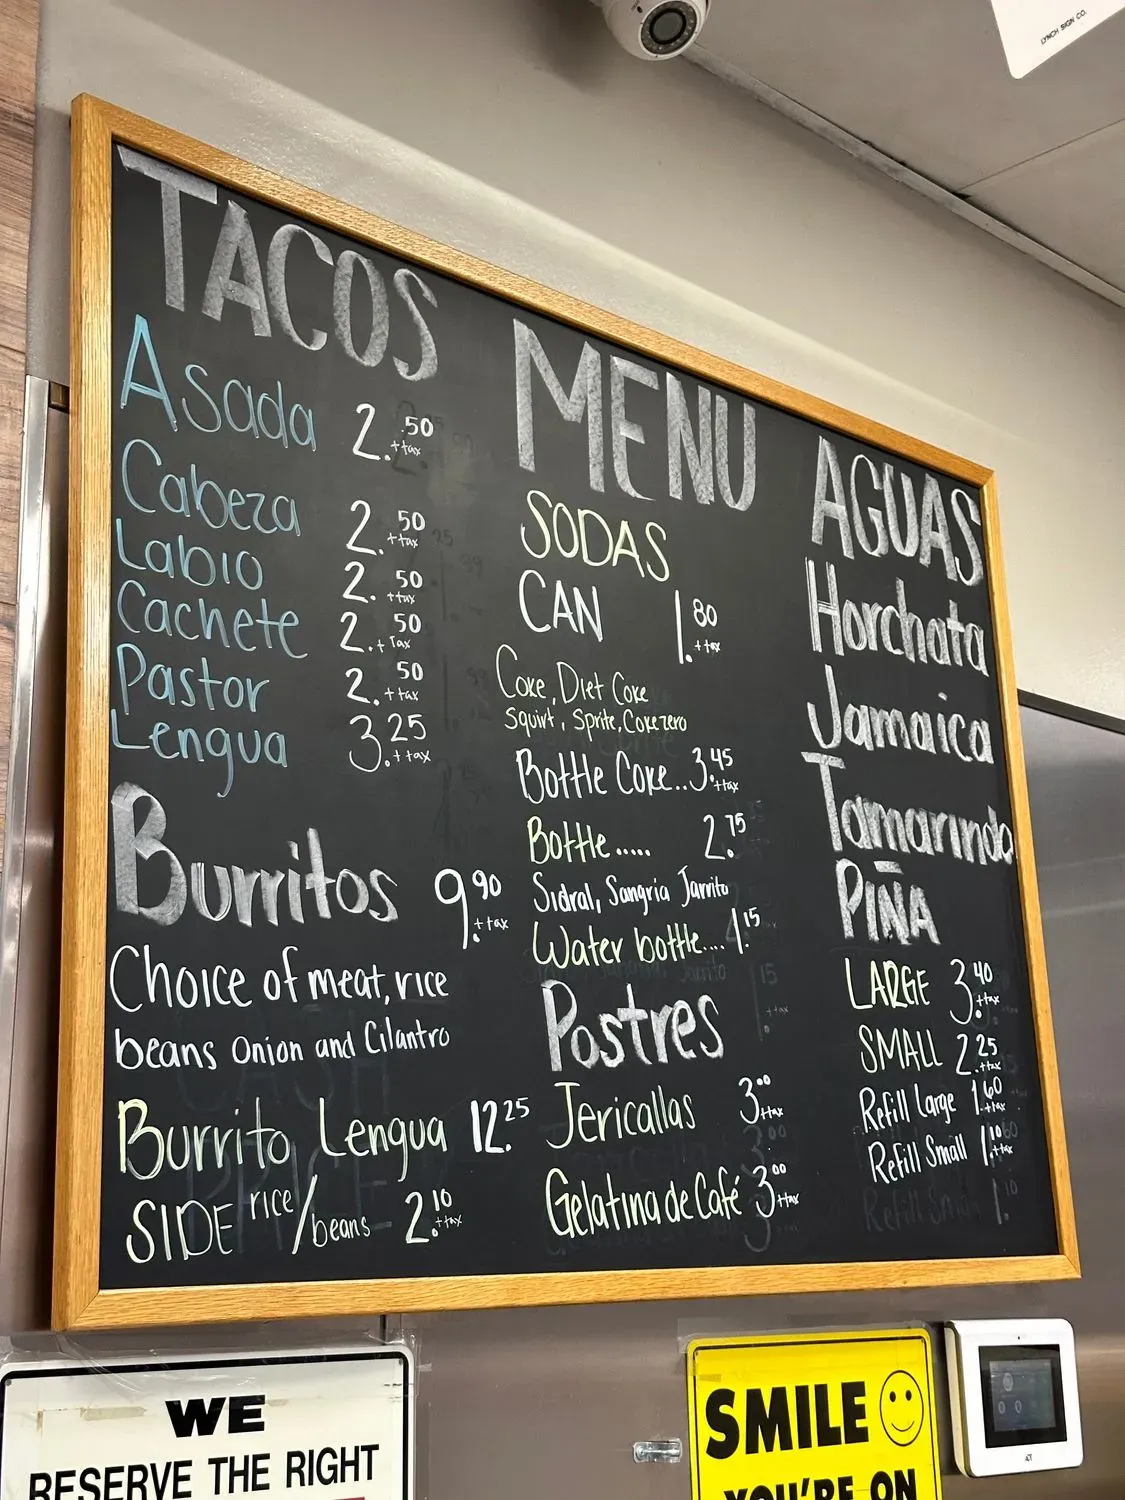 LYNCH SIGN CO.
TACOS
MENU
AGUAS
Asada 2.50 + tax
Cabeza 2.50 + tax
Labio 2.50 + tax
Cachete 2.50 + Tax
Pastor 2.50 + tax
Lengua 3.25 + tax
Burritos 9.90 + tax
Choice of meat, rice
beans Onion and Cilantro
Burrito Lengua 12.25
SIDE rice/beans 2.10 + tax
SODAS
CAN 1.80 + tax
Coke, Diet Coke
Squirt, Sprite, Coke zero
Bottle Coke.. 3.45 + tax
Bottle..... 2.75
Sidral, Sangria Jarrito
Water bottle.... 1.15
Postres
Jericallas 3.00 + tax
Gelatina de Café 3.00 + tax
Horchata
Jamaica
Tamarindo
PIÑA
LARGE 3.40 + tax
SMALL 2.25 + tax
Refill Large 1.60 + tax
Refill Small 1.10 + tax
WE
RESERVE THE RIGHT
SMILE
YOU'RE ON
ADT